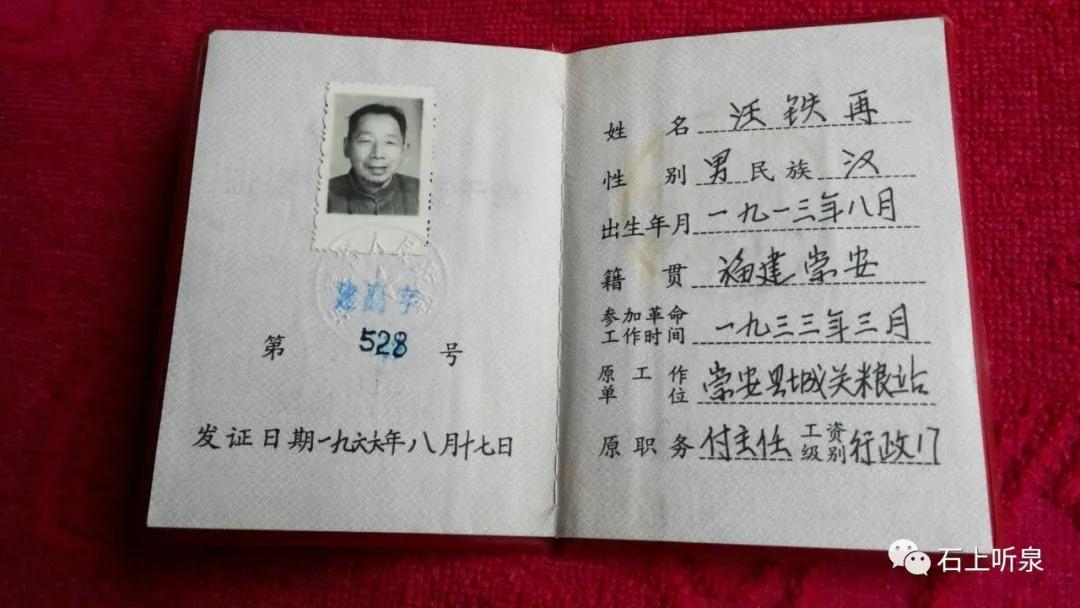 建离字
第 528 号
发证日期一九六六年八月十七日
姓名 汪铁再
性别 男 民族 汉
出生年月 一九一三年八月
籍贯 福建崇安
参加革命工作时间 一九三三年三月
原工作单位 崇安县城关粮站
原职务 付主任 工资级别 行政17
石上听泉